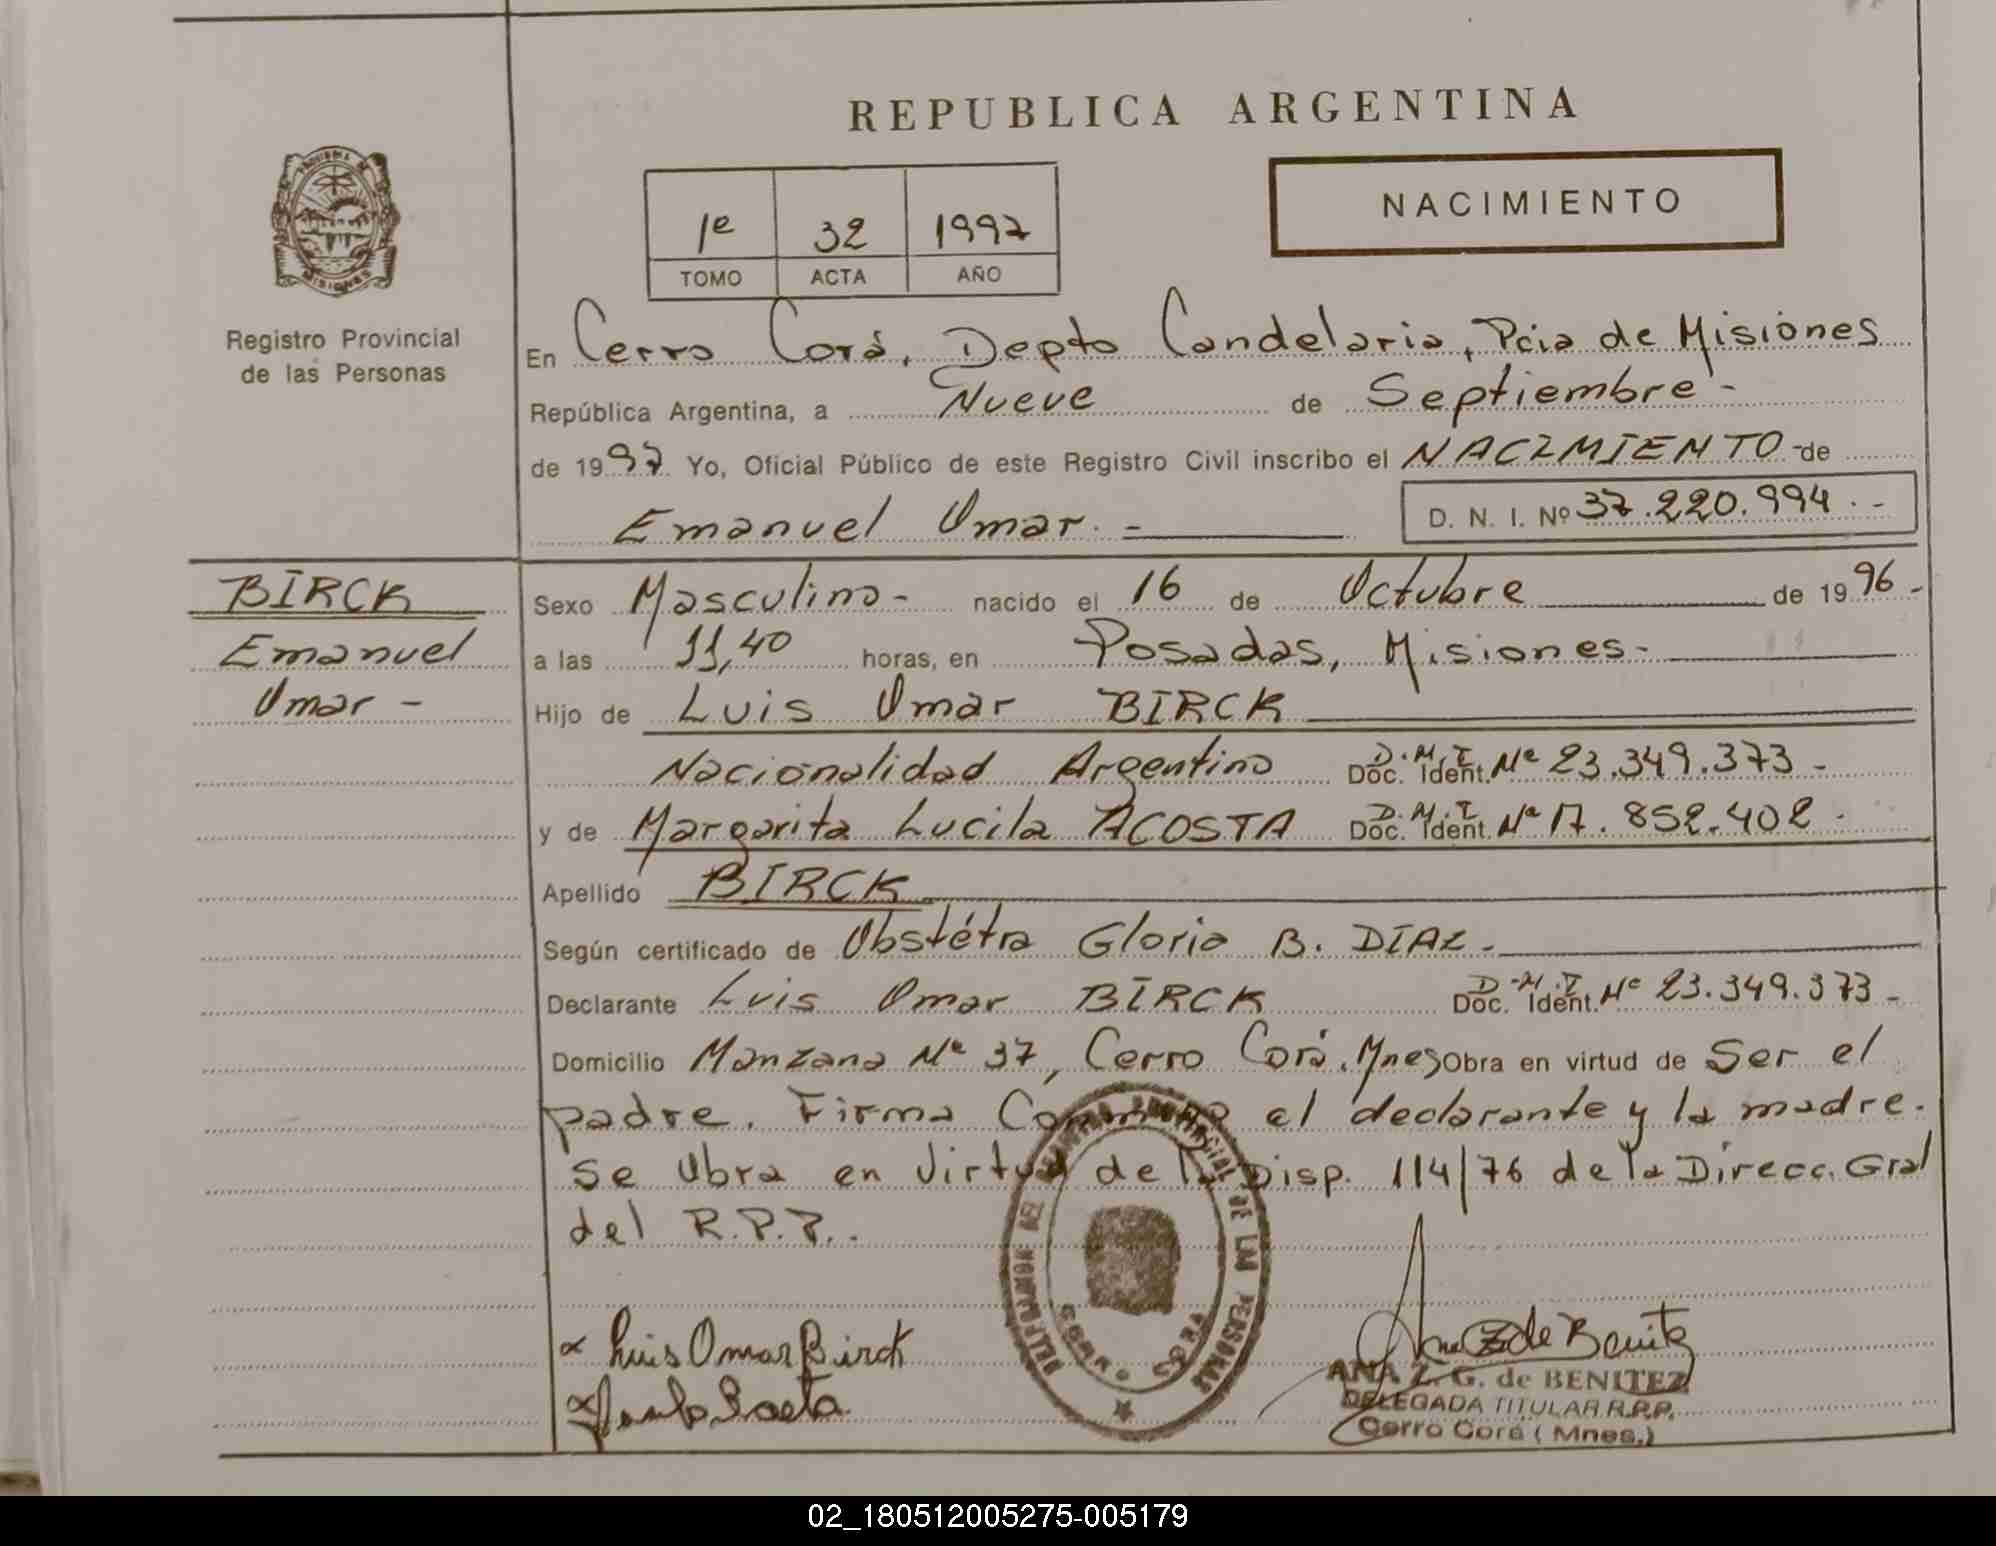 REPUBLICA ARGENTINA
PROVINCIA DE
MISIONES
Registro Provincial
de las Personas
1º 32 1997
TOMO ACTA AÑO
NACIMIENTO
En Cerro Corá, Depto Candelaria, Pcia de Misiones
República Argentina, a Nueve de Septiembre -
de 1997 Yo, Oficial Público de este Registro Civil inscribo el NACIMIENTO - de
Emanuel Omar. - D. N. I. Nº 37.220.994. -
BIRCK
Emanuel
Omar -
Sexo Masculino - nacido el 16 de Octubre de 1996 -
a las 11,40 horas, en Posadas, Misiones -
Hijo de Luis Omar BIRCK
Nacionalidad Argentino Doc. Ident. D.N.I. Nº 23.349.373 -
y de Margarita Lucila ACOSTA Doc. Ident. D.N.I. Nº 17.852.402 -
Apellido BIRCK
Según certificado de Obstétra Gloria B. DIAZ -
Declarante Luis Omar BIRCK Doc. Ident. D.N.I. Nº 23.349.373 -
Domicilio Manzana Nº 37, Cerro Corá, Mnes Obra en virtud de Ser el
padre. Firma Conmigo el declarante y la madre.
Se Obra en Virtud de la Disp. 114/76 de la Direcc. Gral
del R.P.P..
DELEGACION DEL REGISTRO PROVINCIAL DE LAS PERSONAS
CERRO CORA
Luis Omar Birck
Ana Z de Benitez
ANA Z. G. de BENITEZ
DELEGADA TITULAR R.P.P.
Cerro Corá ( Mnes.)
02_180512005275-005179